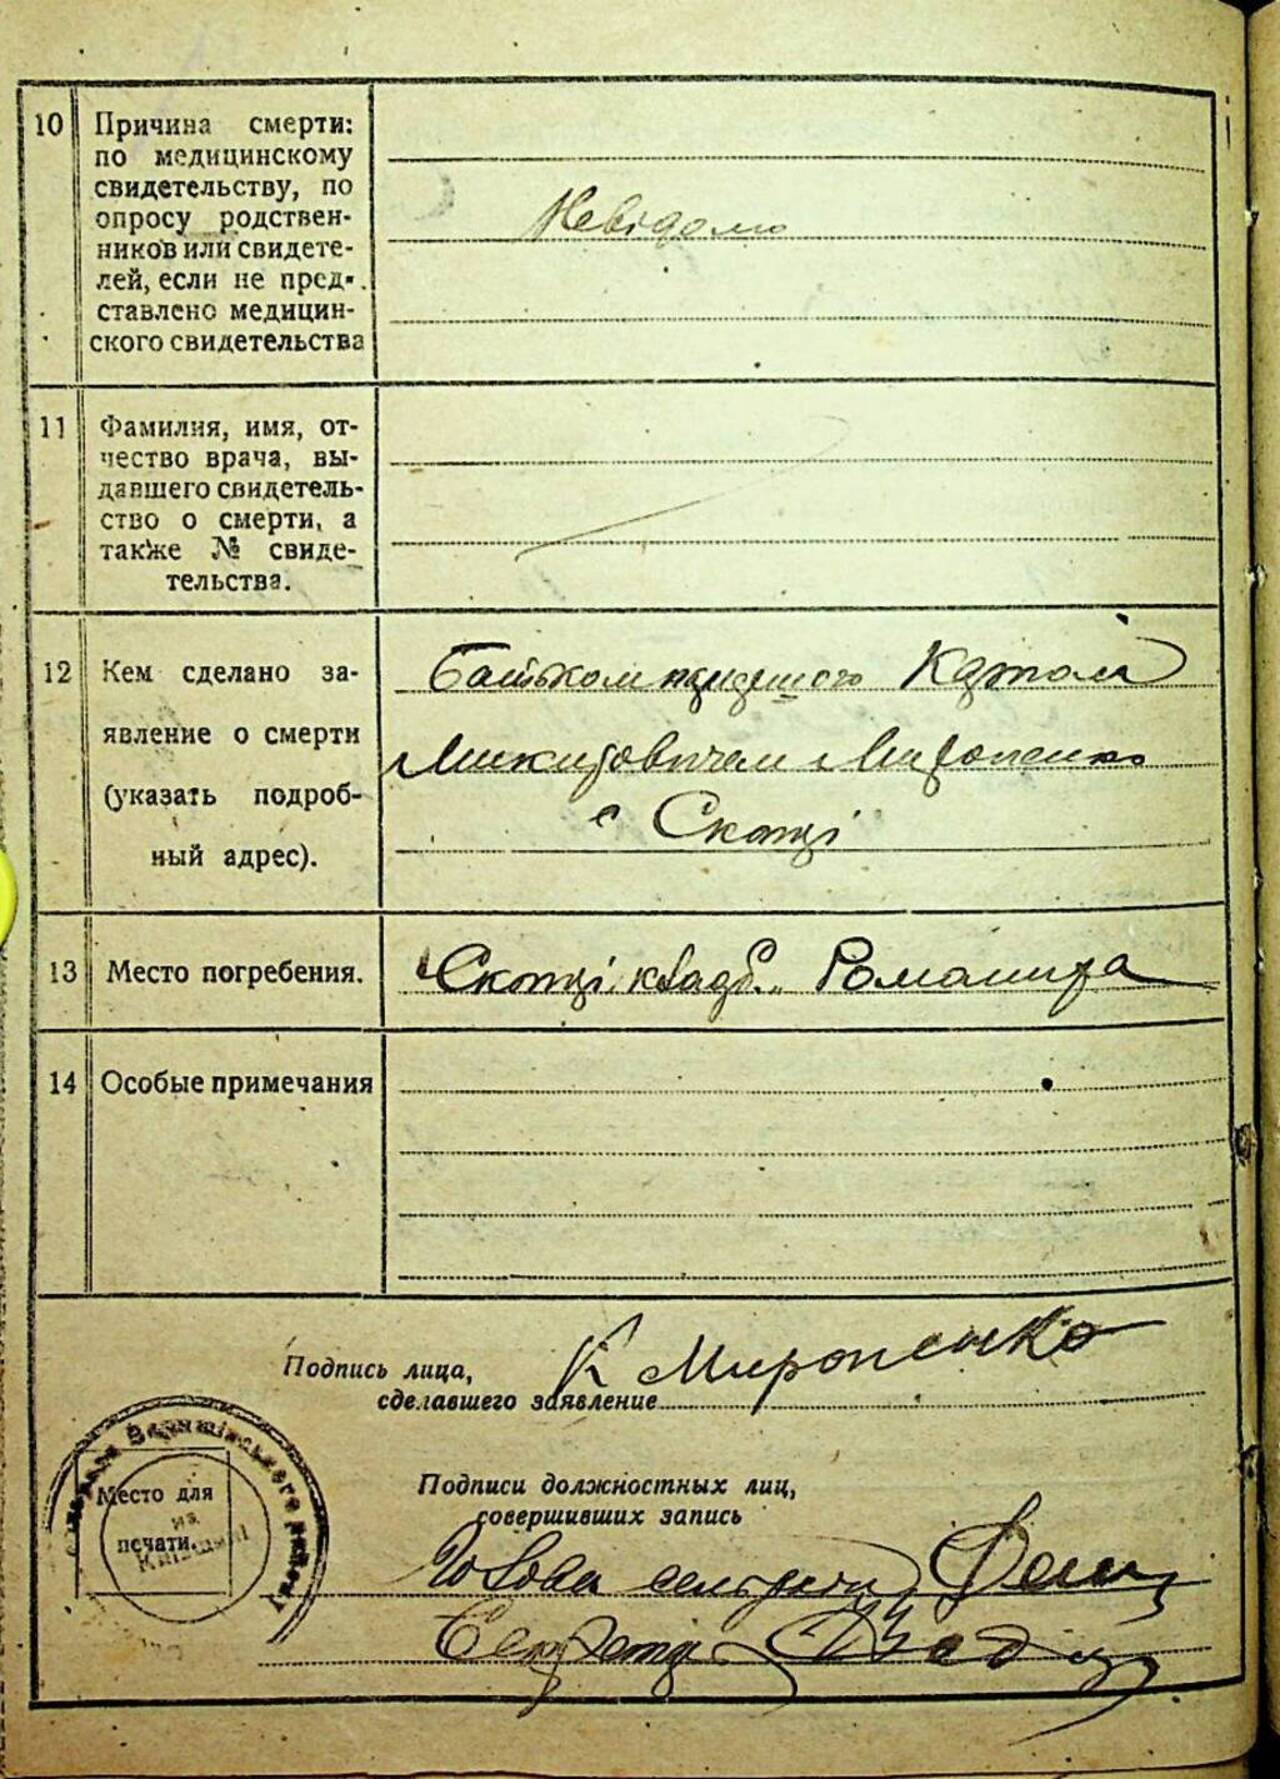 10 Причина смерти:
по медицинскому
свидетельству, по
опросу родствен-
ников или свидете-
лей, если не пред-
ставлено медицин-
ского свидетельства
Невідомо
11 Фамилия, имя, от-
чество врача, вы-
давшего свидетель-
ство о смерти, а
также № свиде-
тельства.
12 Кем сделано за-
явление о смерти
(указать подроб-
ный адрес).
Батьком
Микитовичем Мироненко
с Скопці
13 Место погребения.
Скопці кладб.
14 Особые примечания
Подпись лица,
сделавшего заявление
К Мироненко
Место для
печати.
Подписи должностных лиц,
совершивших запись
Голова сельради
Секретар